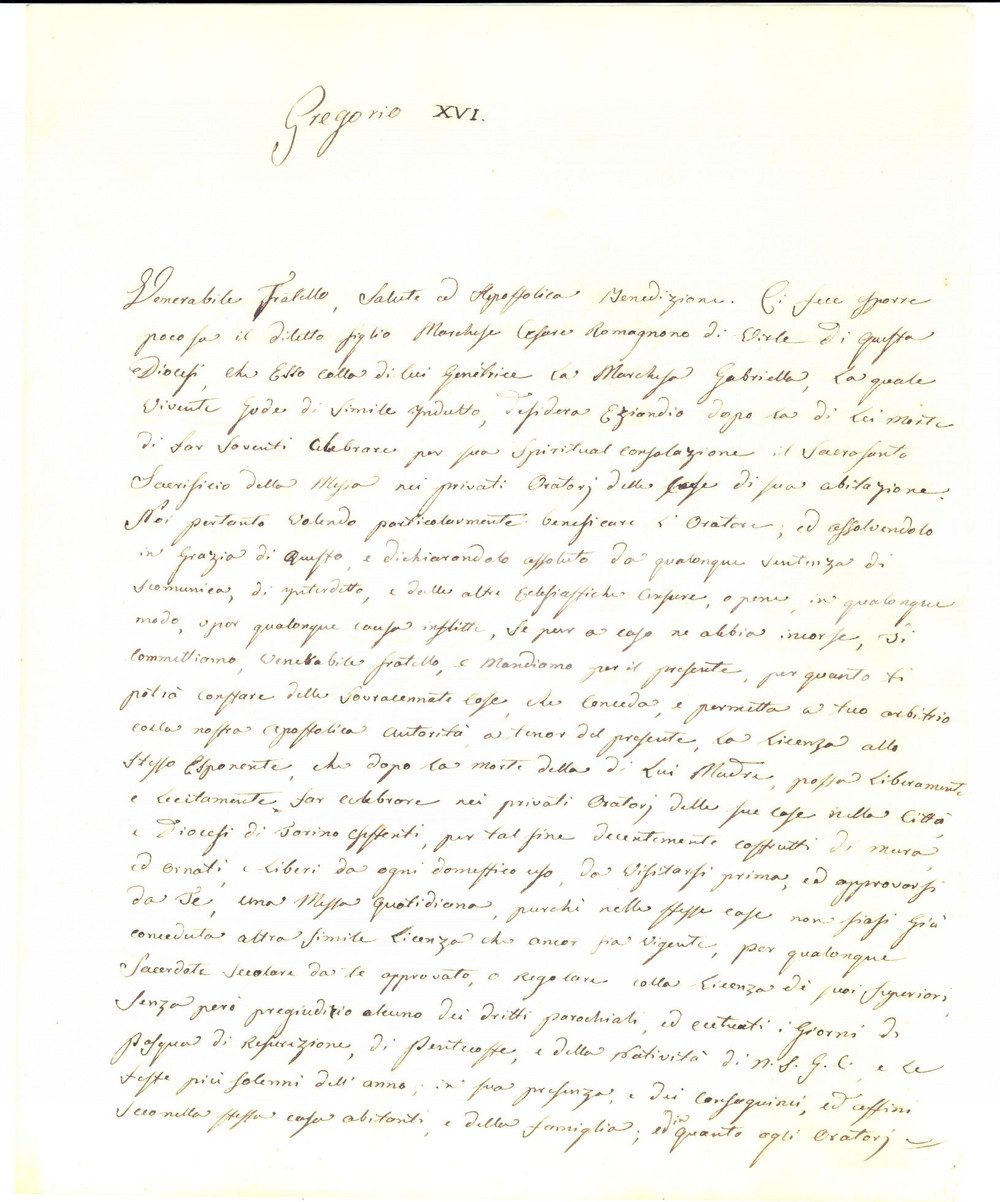 Gregorio XVI.
Venerabile Fratello, Salute ed Apostolica Benedizione. Ci fece esporre
poco fa il diletto figlio Marchese Cesare Romagnono di Virle di questa
Diocesi, che Esso colla di lui Genitrice La Marchesa Gabriella, La quale
Vivente gode di simile Yndulto, desidera Eziandio dopo la di Lei morte
di far soventi Celebrare per sua Spiritual consolazione il Sacrosanto
Sacrificio della Messa nei privati Oratorj delle Case di sua abitazione.
Noi pertanto Volendo particolarmente beneficare L'Oratore; ed assolvendolo
in Grazia di Questo, e dichiarandolo assoluto da qualonque sentenza di
scomunica, di ynterdetto, e dalle altre Eclesiastiche Censure, o pene, in qualonque
modo, o per qualonque causa inflitte, Se pur a caso ne abbia incorse, Ti
Commettiamo, Venerabile fratello, e Mandiamo per il presente, per quanto ti
potrà Constare delle Sovracennate Cose, che Conceda, e permetta a tuo arbitrio
colla nostra Apostolica Autorità, a tenor del presente, La Licenza allo
Stesso Esponente, che dopo La morte della di Lui Madre, possa Liberamente
e Lecitamente far celebrare nei privati Oratorj delle sue case nella Città,
e Diocesi di Torino esistenti, per tal fine decentemente costrutti di mura,
ed ornati, e Liberi da ogni domestico uso, da Visitarsi prima, ed approvarsi
da Te, una Messa quotidiana, purchè nelle stesse case non siasi Già
conceduta altra simile Licenza che ancor sia Vigente, per qualonque
Sacerdote Secolare da te approvato, o Regolare colla Licenza de' suoi superiori,
Senza però pregiudizio alcuno dei dritti parochiali, ed eccetuati i Giorni di
Pasqua di Resurezione, di Pentecoste, e della Natività di N. S. G. C., e Le
feste più solenni dell'anno; in sua presenza, e dei Consaguinei, ed affini
Seco nella stessa casa abitanti, e della famiglia; ed in quanto agli Oratorj